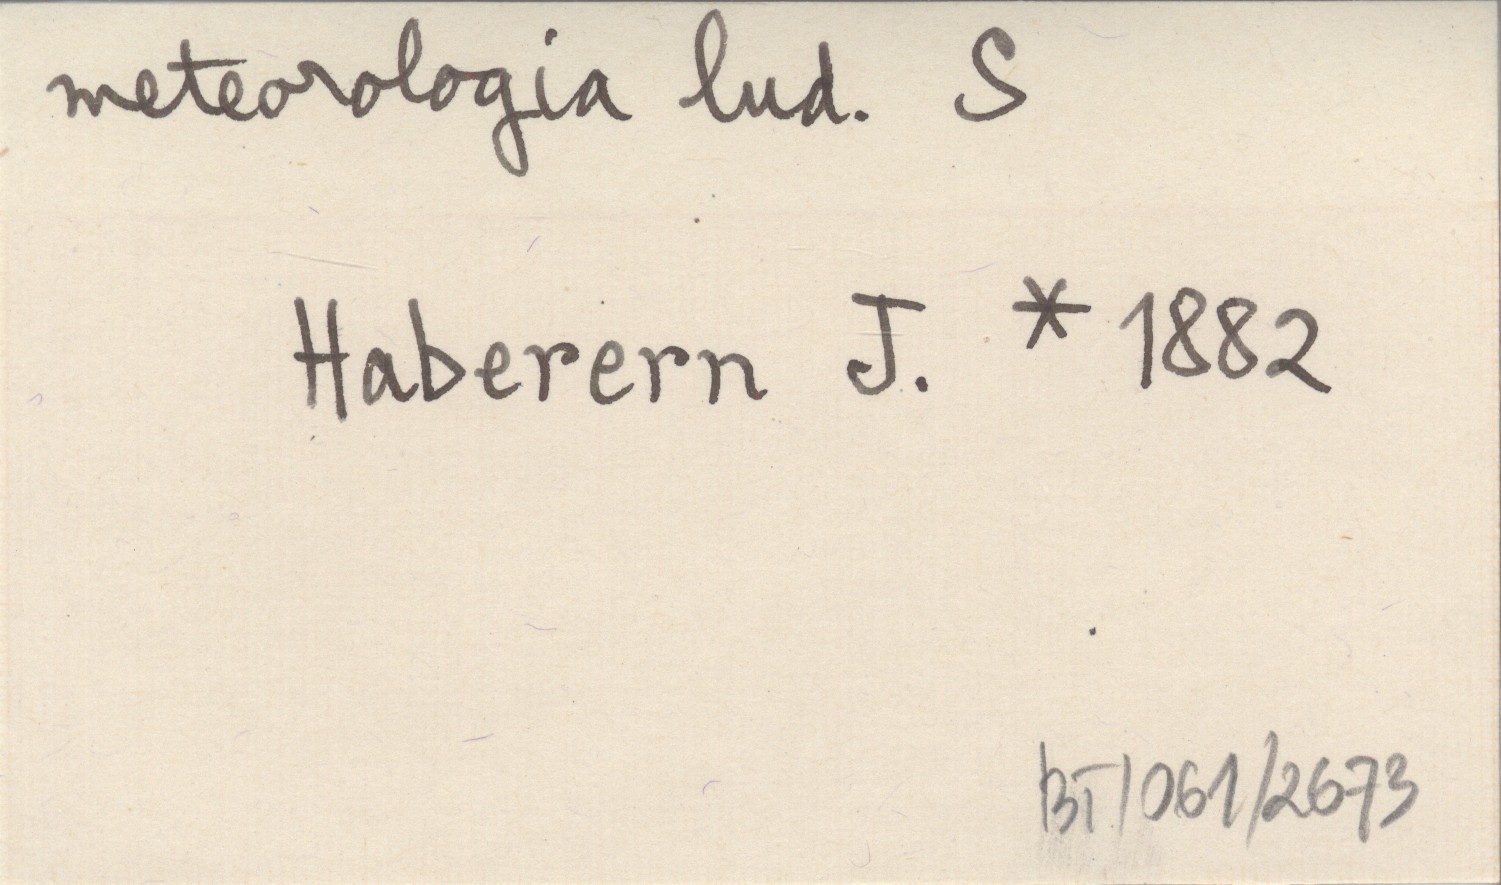 meteorologia lud. S
Haberern J. * 1882
BT/061/2673